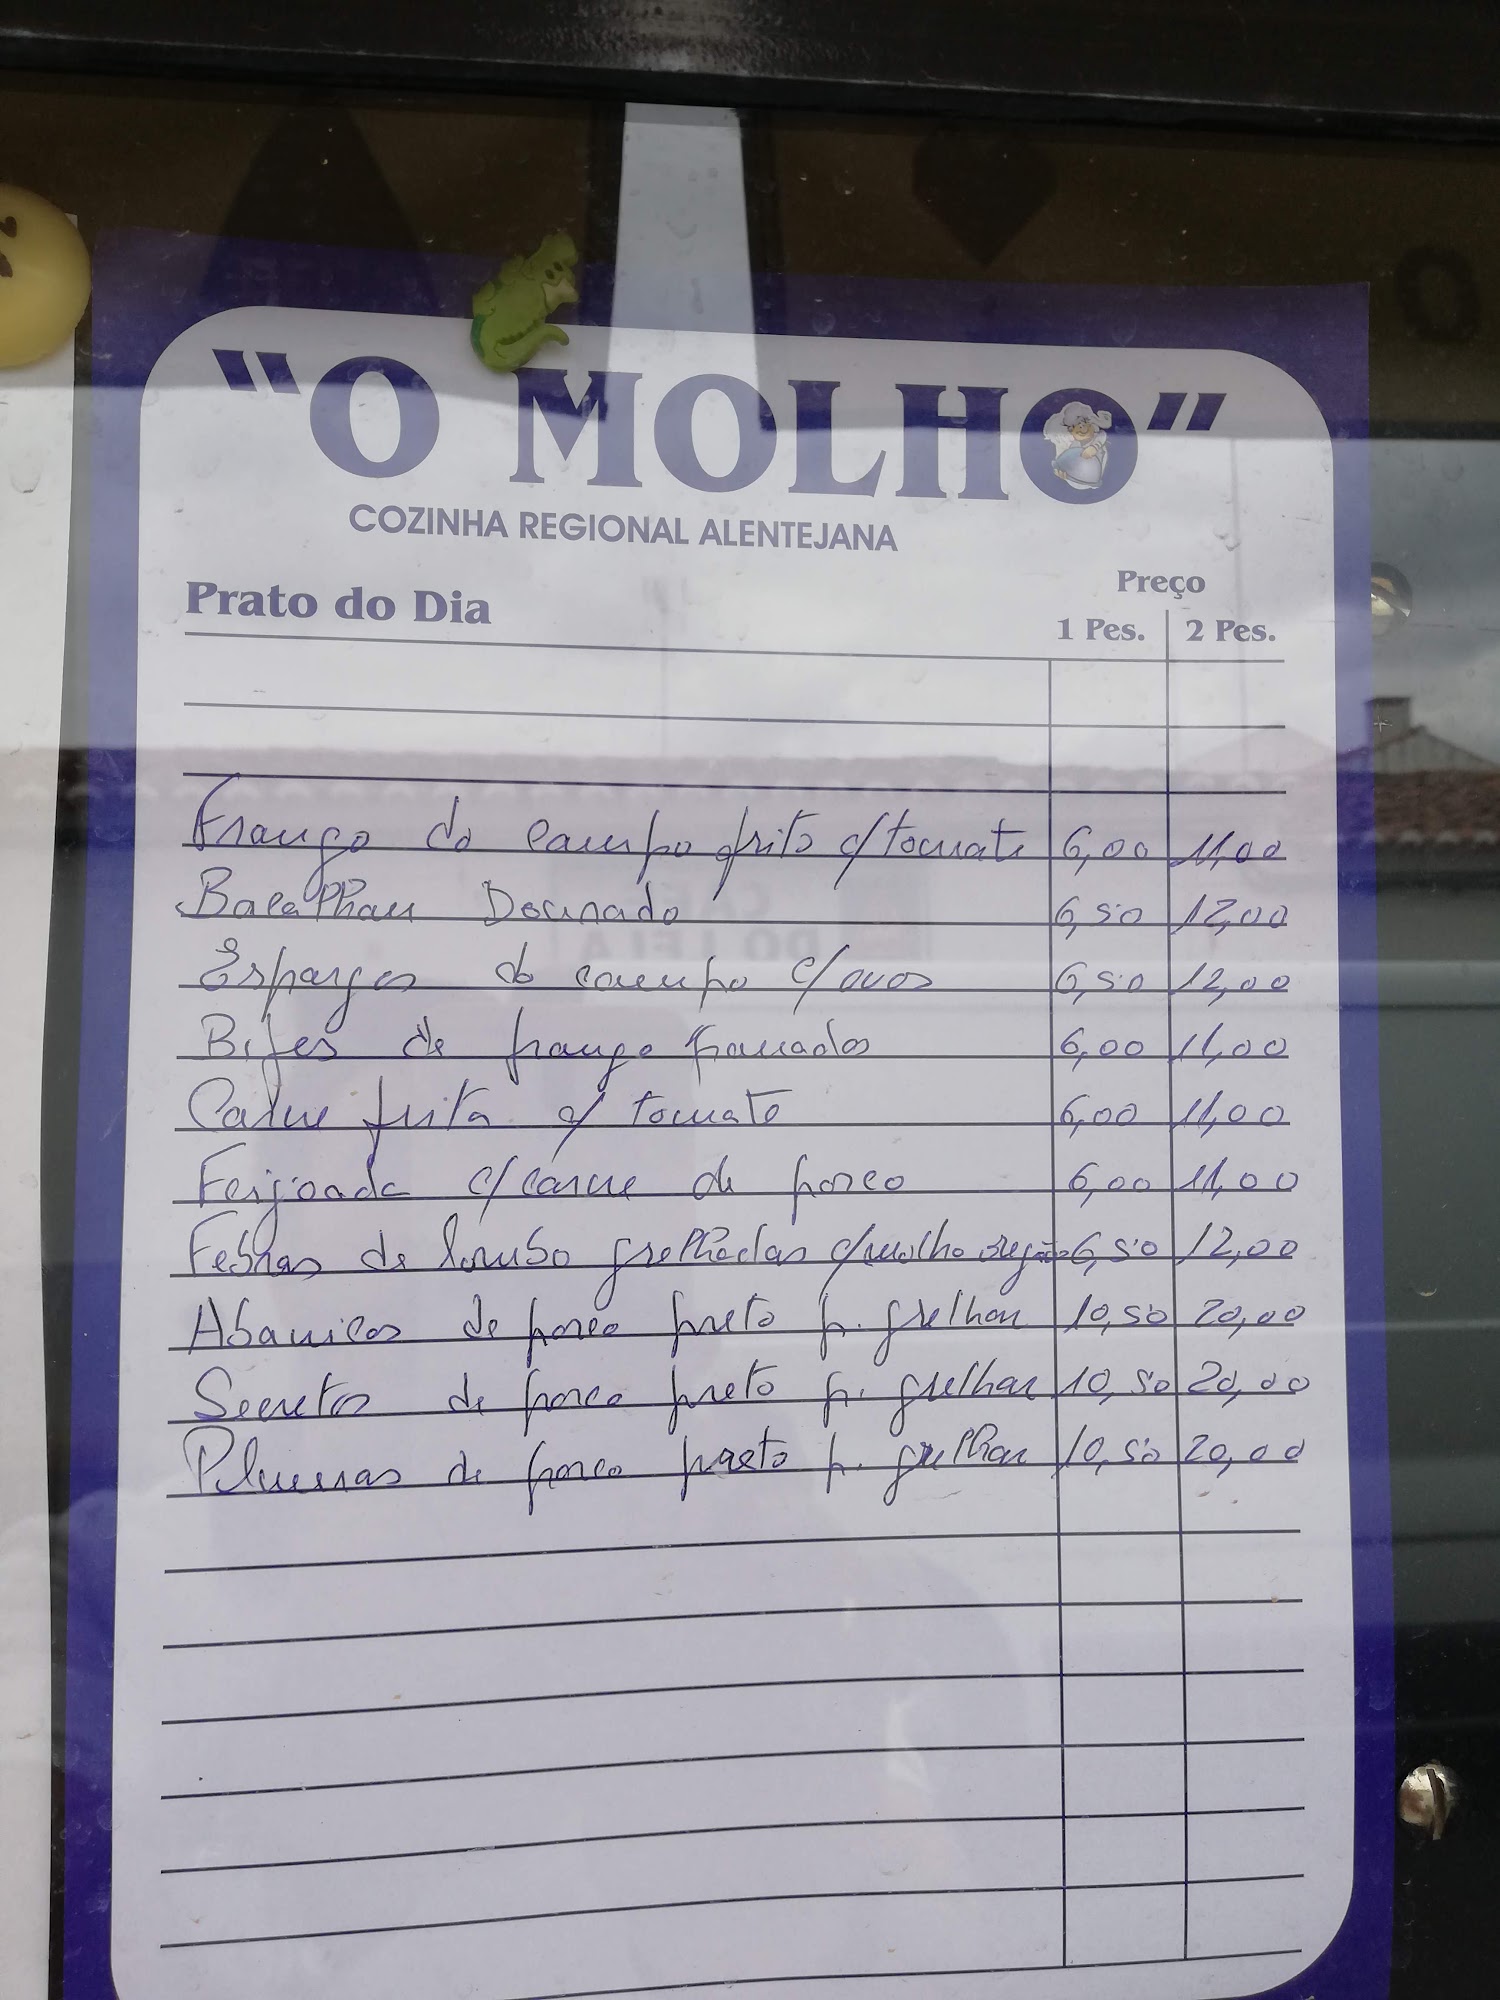 "O MOLHO"
COZINHA REGIONAL ALENTEJANA
Prato do Dia Preço
1 Pes. 2 Pes.
Frango do campo frito c/tomate 6,00 11,00
Bacalhau Dourado 6,50 12,00
Espargos do campo c/ovos 6,50 12,00
Bifes de frango panados 6,00 11,00
Carne frita c/ tomate 6,00 11,00
Feijoada c/carne de porco 6,00 11,00
Febras de lombo grelhadas c/molho 6,50 12,00
Abanicos de porco preto p. grelhar 10,50 20,00
Secretos de porco preto p. grelhar 10,50 20,00
Plumas de porco preto p. grelhar 10,50 20,00